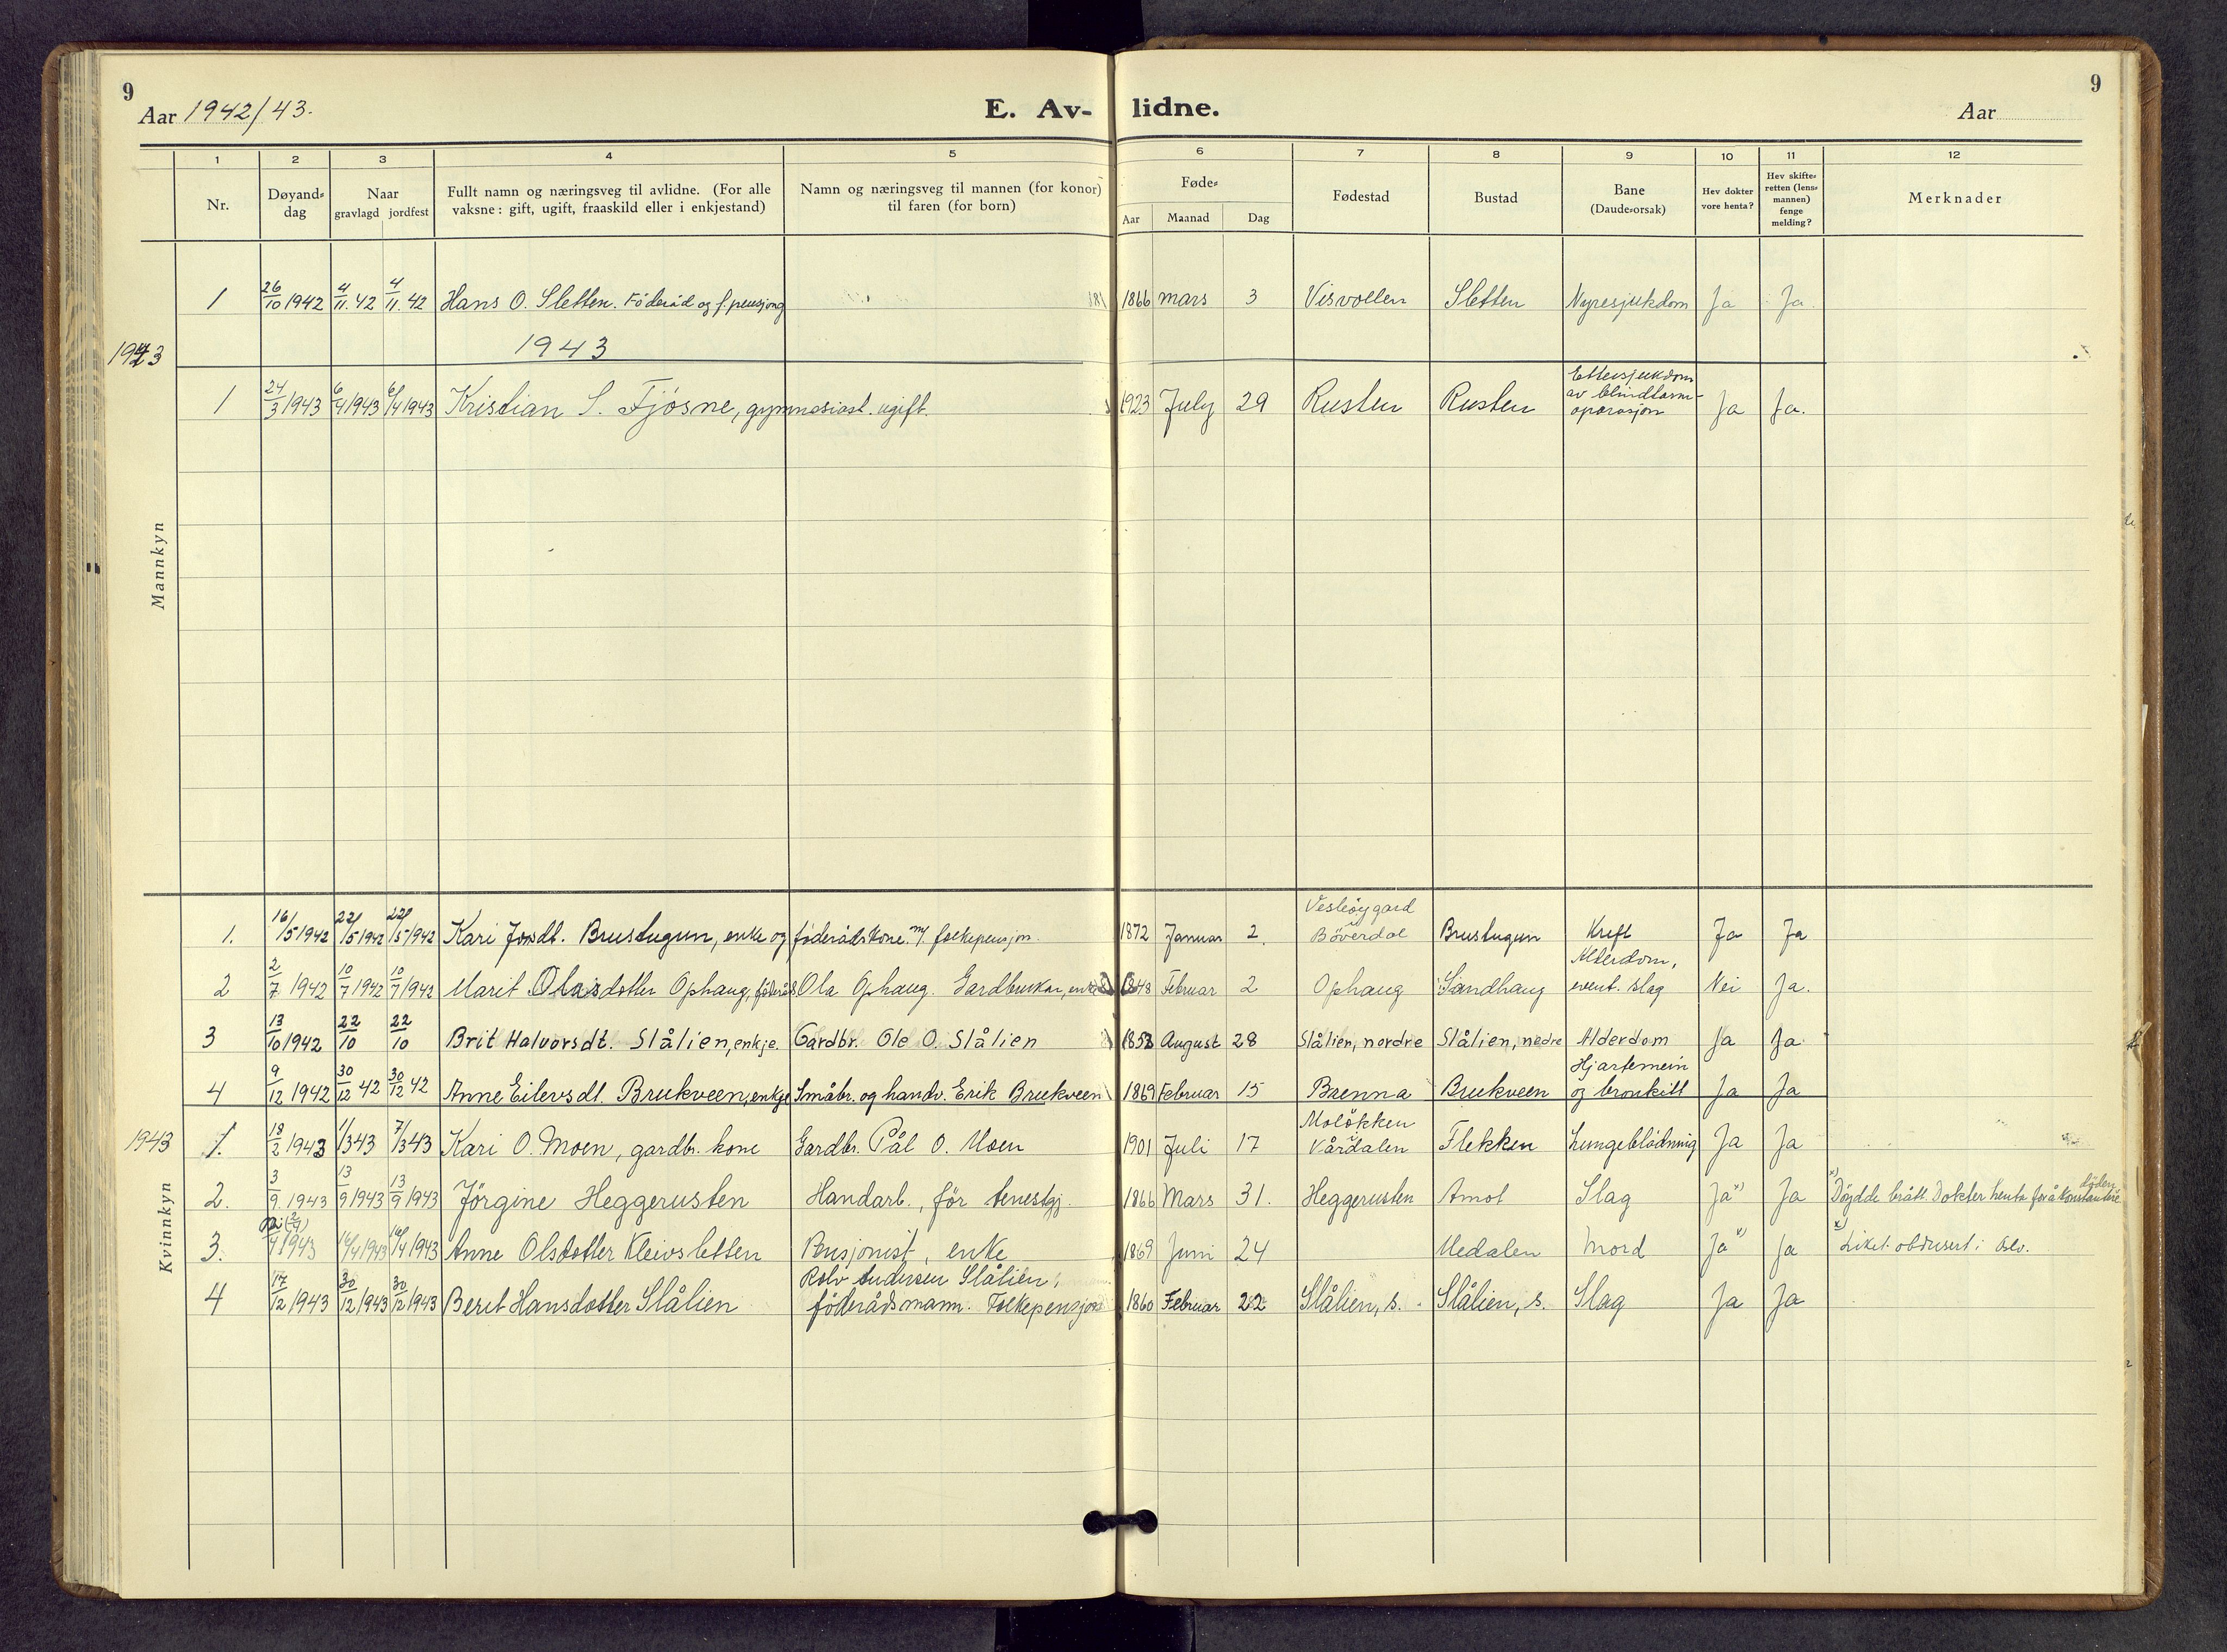 9
Aar 1942/43.
E. Av-lidne.
Aar
9
1 2 3 4 5 6 7 8 9 10 11 12
Nr.
Døyand-
dag
Naar
gravlagd jordfest
Fullt namn og næringsveg til avlidne. (For alle
vaksne: gift, ugift, fraaskild eller i enkjestand)
Namn og næringsveg til mannen (for konor)
til faren (for born)
Føde-
Aar Maanad Dag
Fødestad
Bustad
Bane
(Daude-orsak)
Hev dokter
vore henta?
Hev skifte-
retten (lens-
mannen)
fenge
melding?
Merknader
Mannkyn
1 26/10 1942 4/11. 42 4/11. 42 Hans O. Sletten. Föderåd og f.pensjong 1866 mars 3 Visvollen Sletten Nyresjukdom Ja Ja.
1943
1943
1 24/3 1943 6/4 1943 6/4 1943 Kristian S. Fjøsne, gymnasiast. ugift. 1923 July 29 Rusten Rusten Ettersjukdom
av blindtarm-
operasjon Ja Ja.
Kvinnkyn
1. 16/5 1942 22/5 1942 22/5 1942 Kari Jonsdt. Brustugun, enke og föderådskone. m/ folkepensjon. 1872 Januar 2. Vesleøygard
i Böverdal Brustugun Kreft Ja Ja
2 2/7 1942 10/7 1942 10/7 1942 Marit Olasdotter Ophaug, föderåd Ola Ophaug. Gardbrukar, 1848 Februar 2 Ophaug Sandhaug Alderdom,
event. slag Nei Ja.
3 13/10 1942 22/10 22/10 Brit Halvorsdt. Slålien, enkje. Gardbr. Ole O. Slålien 1858 August 28 Slålien, nordre Slålien, nedre Alderdom Ja Ja.
4 9/12 1942 30/12 42 30/12 42 Anne Eilevsdt. Brukveen, enkje Småbr. og handv. Erik Brukveen 1869 Februar 15 Brenna Brukveen Hjartemein
og bronkitt Ja Ja
1943
1. 18/2 1943 1/3 43 7/3 43 Kari O. Moen, gardbr. kone Gardbr. Pål O. Moen 1901 Juli 17 Molökken
i Vårdalen Flekken Lungeblödning Ja Ja
2. 3/9 1943 13/9 1943 13/9 1943 Jörgine Heggerusten Handarb., för tenestgj. 1866 Mars 31. Heggerusten Amot Slag Ja x) Ja x) Döydde brått. Dokter henta for å konstantere döden.
3. 4 1943 16/4 1943 16/4 1943 Anne Olsdotter Kleivsletten Pensjonist, enke 1869 Juni 24 Medalen Mord Ja x) Ja x) Liket obdusert i Oslo.
4 17/12 1943 30/12 1943 30/12 1943 Berit Hansdotter Slålien Rolv Andersen Slålien,
föderådsmann. Folkepensjon 1860 Februar 22 Slålien, s. Slålien, s. Slag Ja Ja